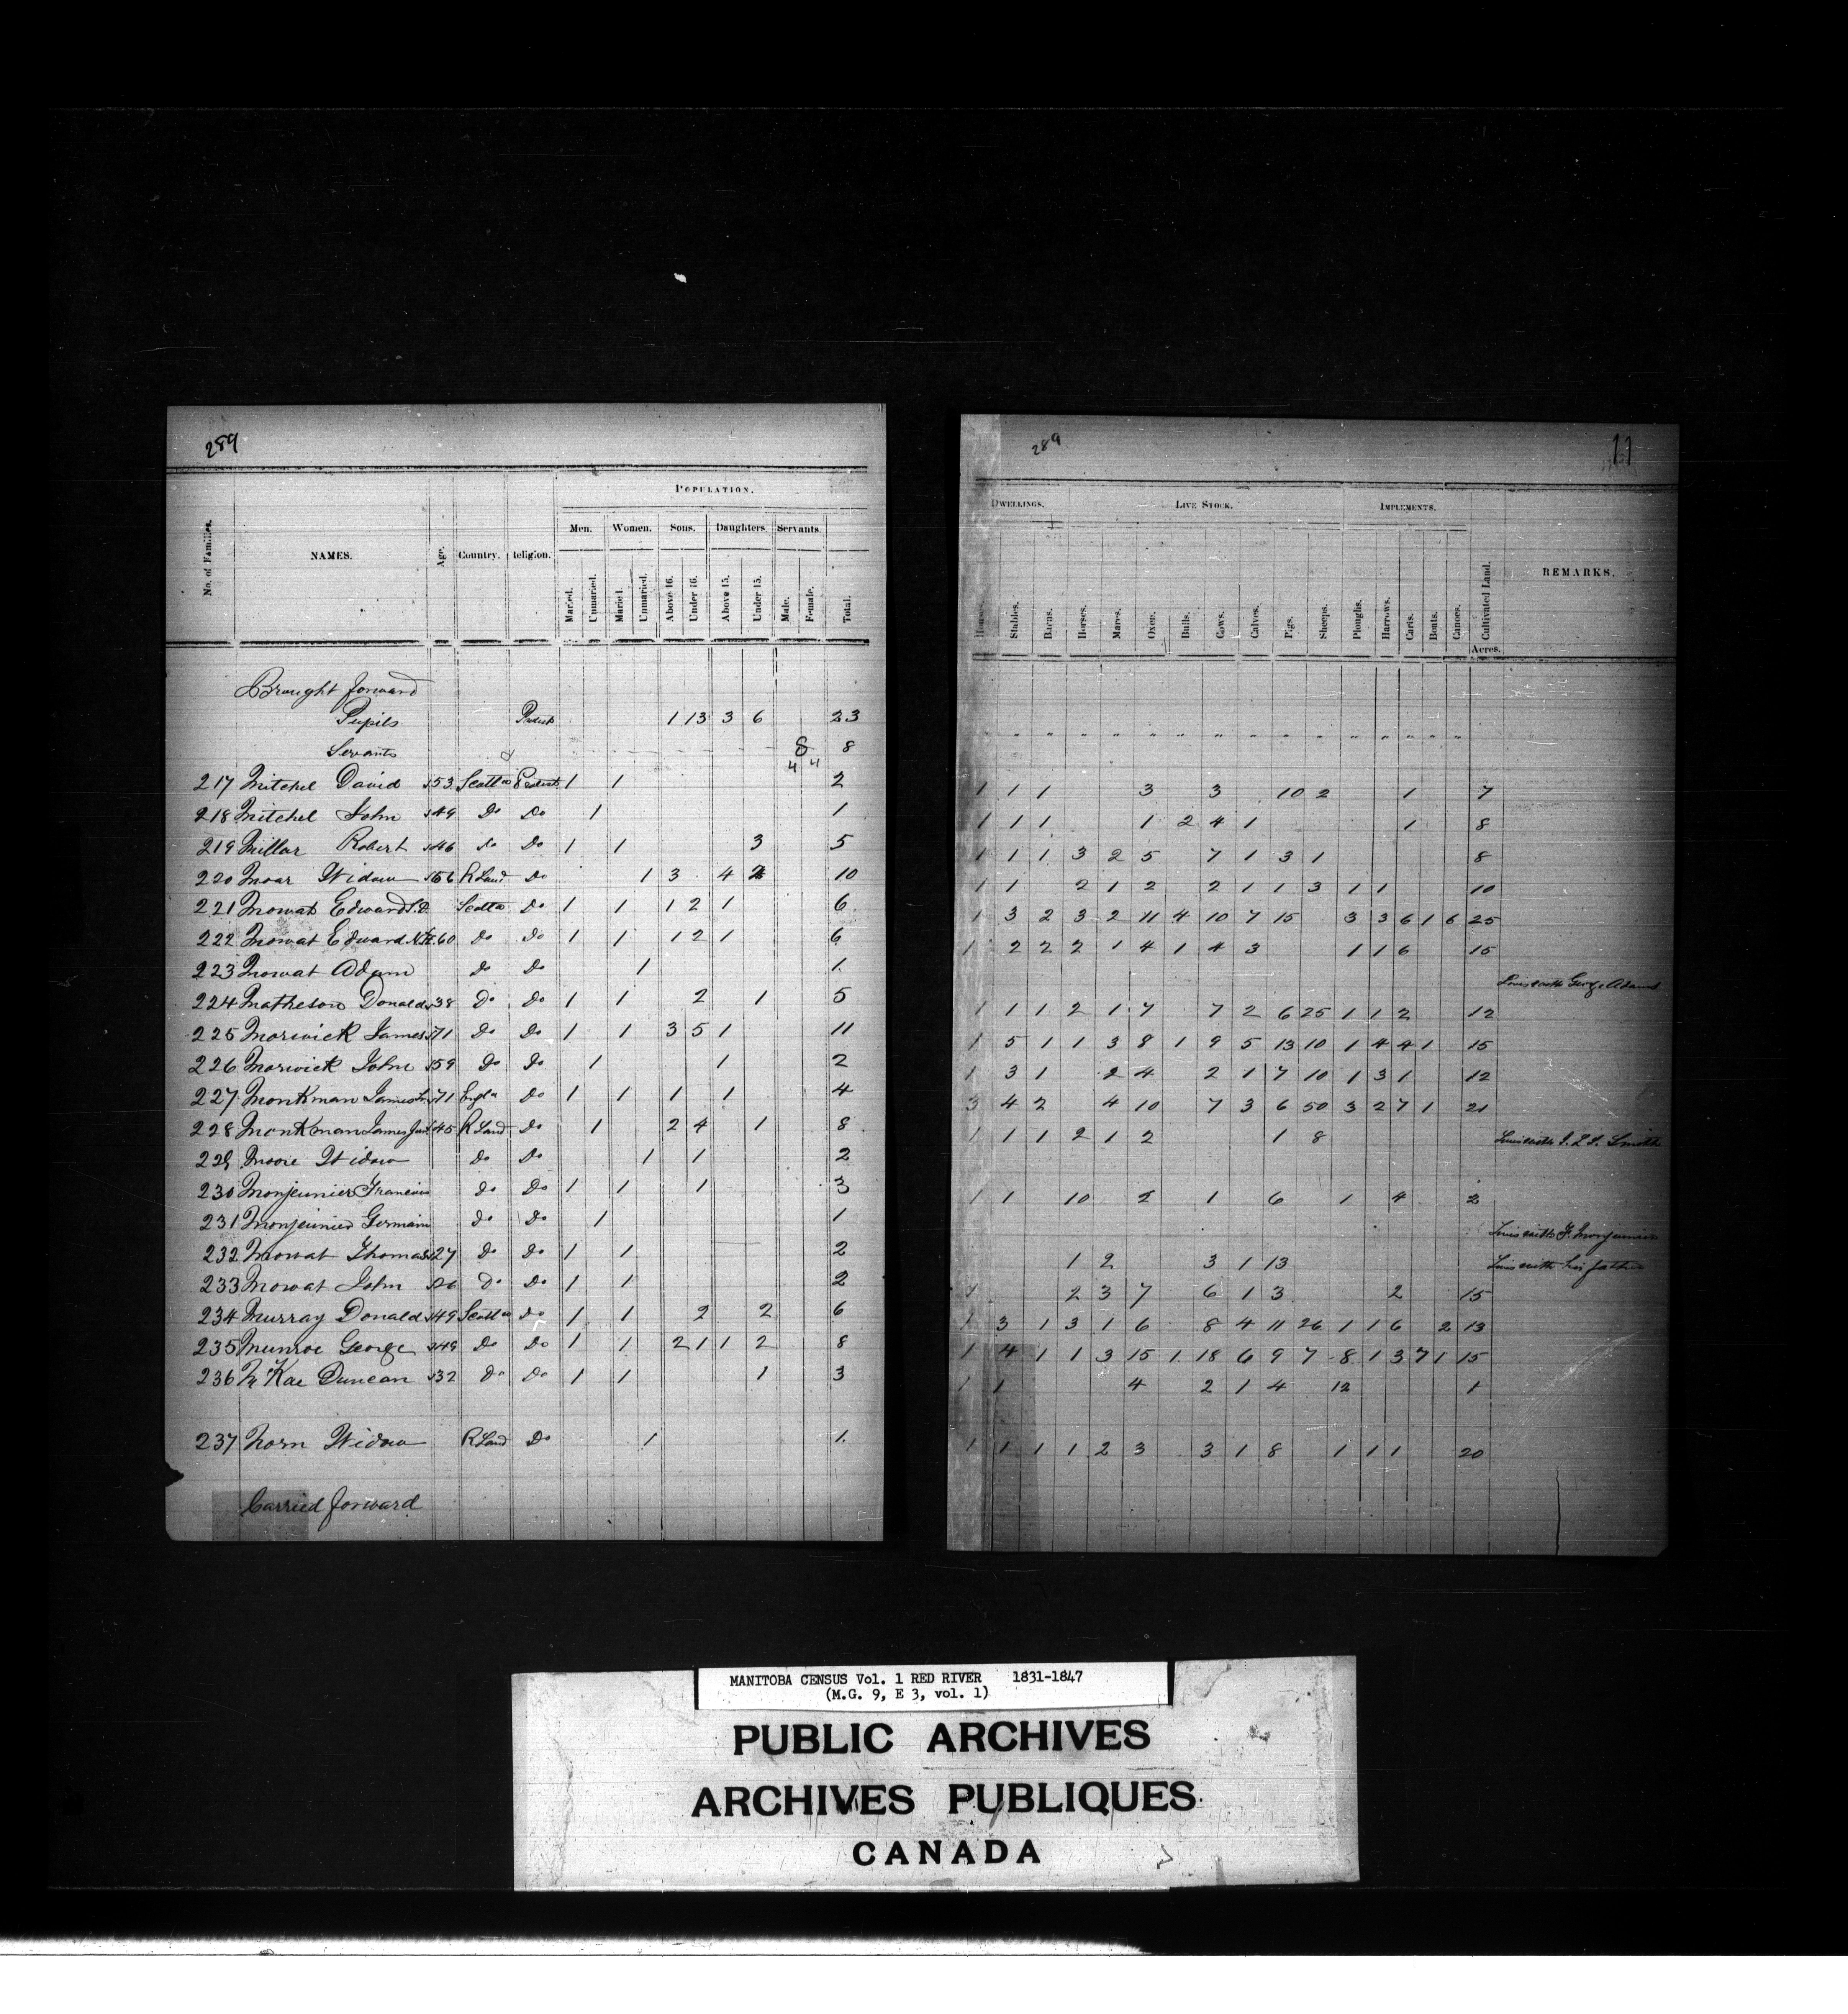 289
No. of Families. NAMES. Age. Country. Religion. POPULATION.
Men. Women. Sons. Daughters. Servants.
Married. Unmarried. Married. Unmarried. Above 16. Under 16. Above 15. Under 15. Male. Female. Total.
Brought forward
Pupils 1 13 3 6 23
Servants 8 8
4 4
217 Mitchel David 53 Scotld Protest 1 1 2
218 Mitchel John 49 Do Do 1 1
219 Millar Robert 46 do Do 1 1 3 5
220 Moar Widow 56 R Land Do 1 3 4 2 10
221 Mowat Edward Scotld Do 1 1 1 2 1 6
222 Mowat Edward 60 Do Do 1 1 1 2 1 6
223 Mowat Adam Do Do 1 1
224 Matheson Donald 38 Do Do 1 1 2 1 5
225 Morwick James 71 Do Do 1 1 3 5 1 11
226 Morwick John 59 Do Do 1 1 2
227 Monkman James 71 Engld Do 1 1 1 1 4
228 Monkman James Jun 45 R Land Do 1 2 4 1 8
229 Moore Widow Do Do 1 1 2
230 Monjeunier Francois Do Do 1 1 1 3
231 Monjeunier Germain Do Do 1 1
232 Mowat Thomas 27 Do Do 1 1 2
233 Mowat John Do Do 1 1 2
234 Murray Donald 49 Scotld Do 1 1 2 2 6
235 Munroe George 49 Do Do 1 1 2 1 1 2 8
236 McKae Duncan 32 Do Do 1 1 1 3
237 Norn Widow R Land Do 1 1
Carried forward
289 11
DWELLINGS. LIVE STOCK. IMPLEMENTS. Cultivated Land. REMARKS.
Houses. Stables. Barns. Horses. Mares. Oxen. Bulls. Cows. Calves. Pigs. Sheeps. Ploughs. Harrows. Carts. Boats. Canoes. Acres.
1 1 1 3 3 10 2 1 7
1 1 1 1 2 4 1 1 8
1 1 1 3 2 5 7 1 3 1 8
1 1 2 1 2 2 1 1 3 1 1 10
1 3 2 3 2 11 4 10 7 15 3 3 6 1 6 25
1 2 2 2 1 4 1 4 3 1 1 6 15
Lives with George Adams
1 1 1 2 1 7 7 2 6 25 1 1 2 12
1 5 1 1 3 8 1 9 5 13 10 1 4 4 1 15
1 3 1 2 4 2 1 7 10 1 3 1 12
3 4 2 4 10 7 3 6 50 3 2 7 1 21
1 1 1 2 1 2 1 8
Lives with Smith
1 1 10 2 1 6 1 4 2
Lives with F. Monjeunier
1 2 3 1 13 Lives with his father
1 2 3 7 6 1 3 2 15
1 3 1 3 1 6 8 4 11 26 1 1 6 2 13
1 4 1 1 3 15 1 18 6 9 7 8 1 3 7 1 15
1 1 4 2 1 4 12 1
1 1 1 1 2 3 3 1 8 1 1 1 20
MANITOBA CENSUS Vol. 1 RED RIVER 1831-1847
(M.G. 9, E 3, vol. 1)
PUBLIC ARCHIVES
ARCHIVES PUBLIQUES
CANADA